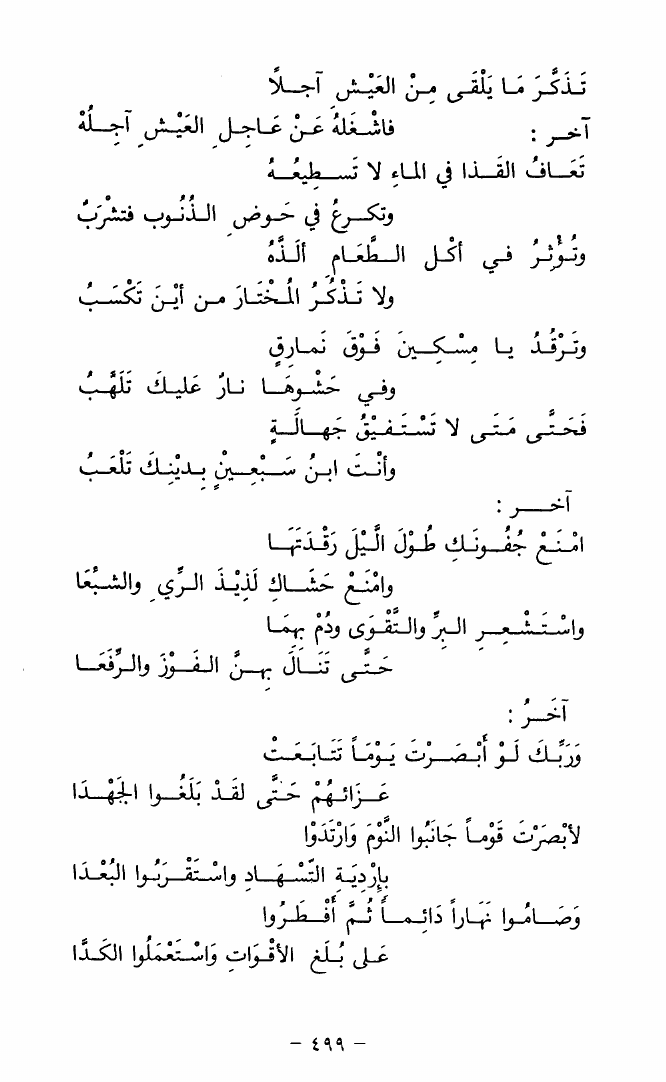 تَذَكَّرَ مَا يَلْقَى مِنْ العَيْشِ آجلًا
فاشْغلهُ عَنْ عَاجلِ العَيْشِ آجِلُهْ
آخر :
تَعَافُ القَذا في الماءِ لا تَسطِيعُهُ
وتكرعُ في حَوضِ الذُنُوبِ فتشْرَبُ
وتُؤْثِرُ في أكْلِ الطَّعَامِ ألَذَّهُ
ولا تَذْكُرُ المُخْتارَ من أيْنَ تَكْسَبُ
وتَرْقُدُ يا مِسْكِينَ فَوْقَ نَمارِقٍ
وفي حَشْوِهَا نارٌ عَليكَ تَلَهَّبُ
فَحَتَّى مَتَى لا تَسْتَفيْقُ جَهالَةٍ
وأنْتَ ابنُ سَبْعِينٍ بِدِيْنِكَ تَلْعَبُ
آخر :
امْنَعْ جُفُونَكِ طُوْلَ الَّيْلِ رَقْدَتَهَا
وامْنَعْ حَشَاكِ لَذِيْذَ الرِّي والشبْعَا
واسْتَشْعِرِ البِرَّ والتَّقْوَى ودُمْ بِهِمَا
حَتَّى تَنَالَ بِهِنَّ الفَوْزَ والرِّفَعَا
آخَرُ :
وَرَبِّكَ لَوْ أَبْصَرْتَ يَوْمَاً تَتَابَعَتْ
عَزَائهُمْ حَتَّى لَقَدْ بَلَغُوا الجَهْدَا
لأبْصَرْتَ قَوْماً جَانَبُوا النَّوْمَ وَارْتَدَوْا
بِإِرْدِيَةِ التّسْهَادِ واسْتَقْرَبُوا البُعْدَا
وَصَامُوا نَهَاراً دَائِماً ثُمَّ أَفْطَرُوا
عَلى بُلَغِ الأقْوَاتِ وَاسْتَعْمَلُوا الكَدَّا
– ٤٩٩ –